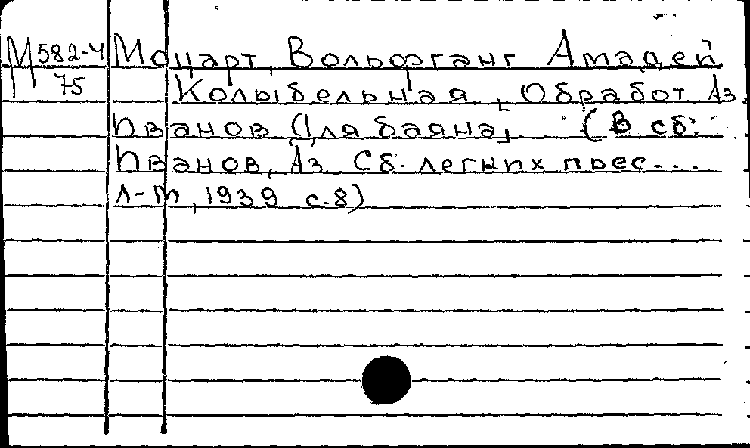 М 582-4 Моцарт, Вольфганг Амадей
75 Колыбельная, Обработ Аз.
Иванов [Для баяна] (В сб.:
Иванов, Аз. Сб. легких пьес...
Л-М, 1939 с.8)